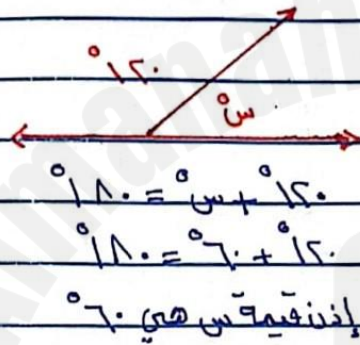 ١٢٠°
س°
١٢٠° + س° = ١٨٠°
١٢٠° + ٦٠° = ١٨٠°
إذن قيمة س هي ٦٠°